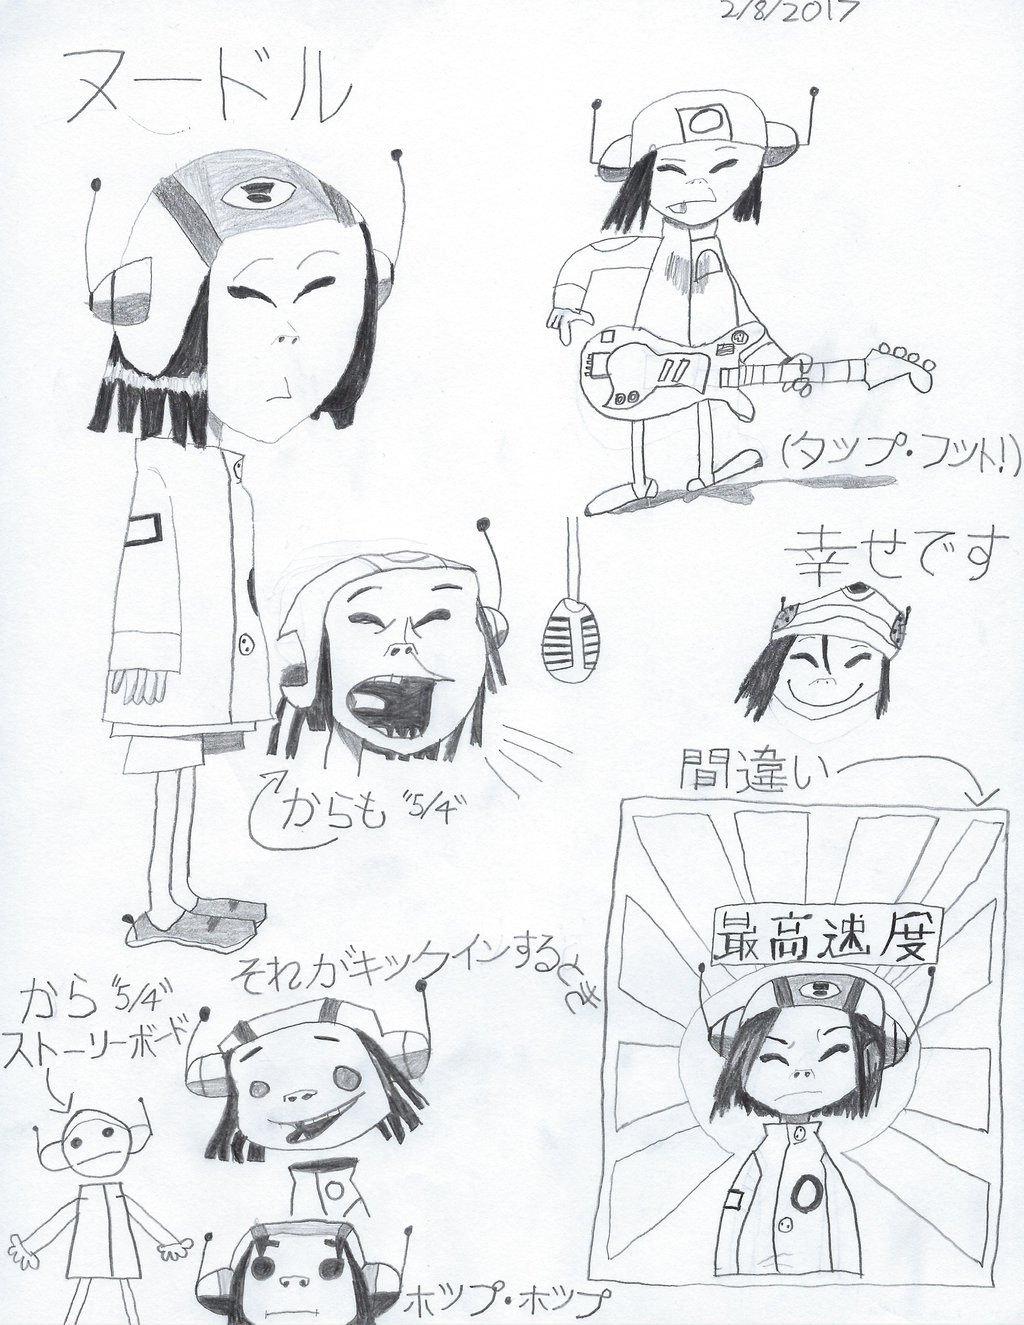 2/8/2017
ヌードル
(タップ・フット!)
幸せです
間違い
からも "5/4"
最高速度
それがキックインするとき
から "5/4"
ストーリーボード
ホップ・ホップ